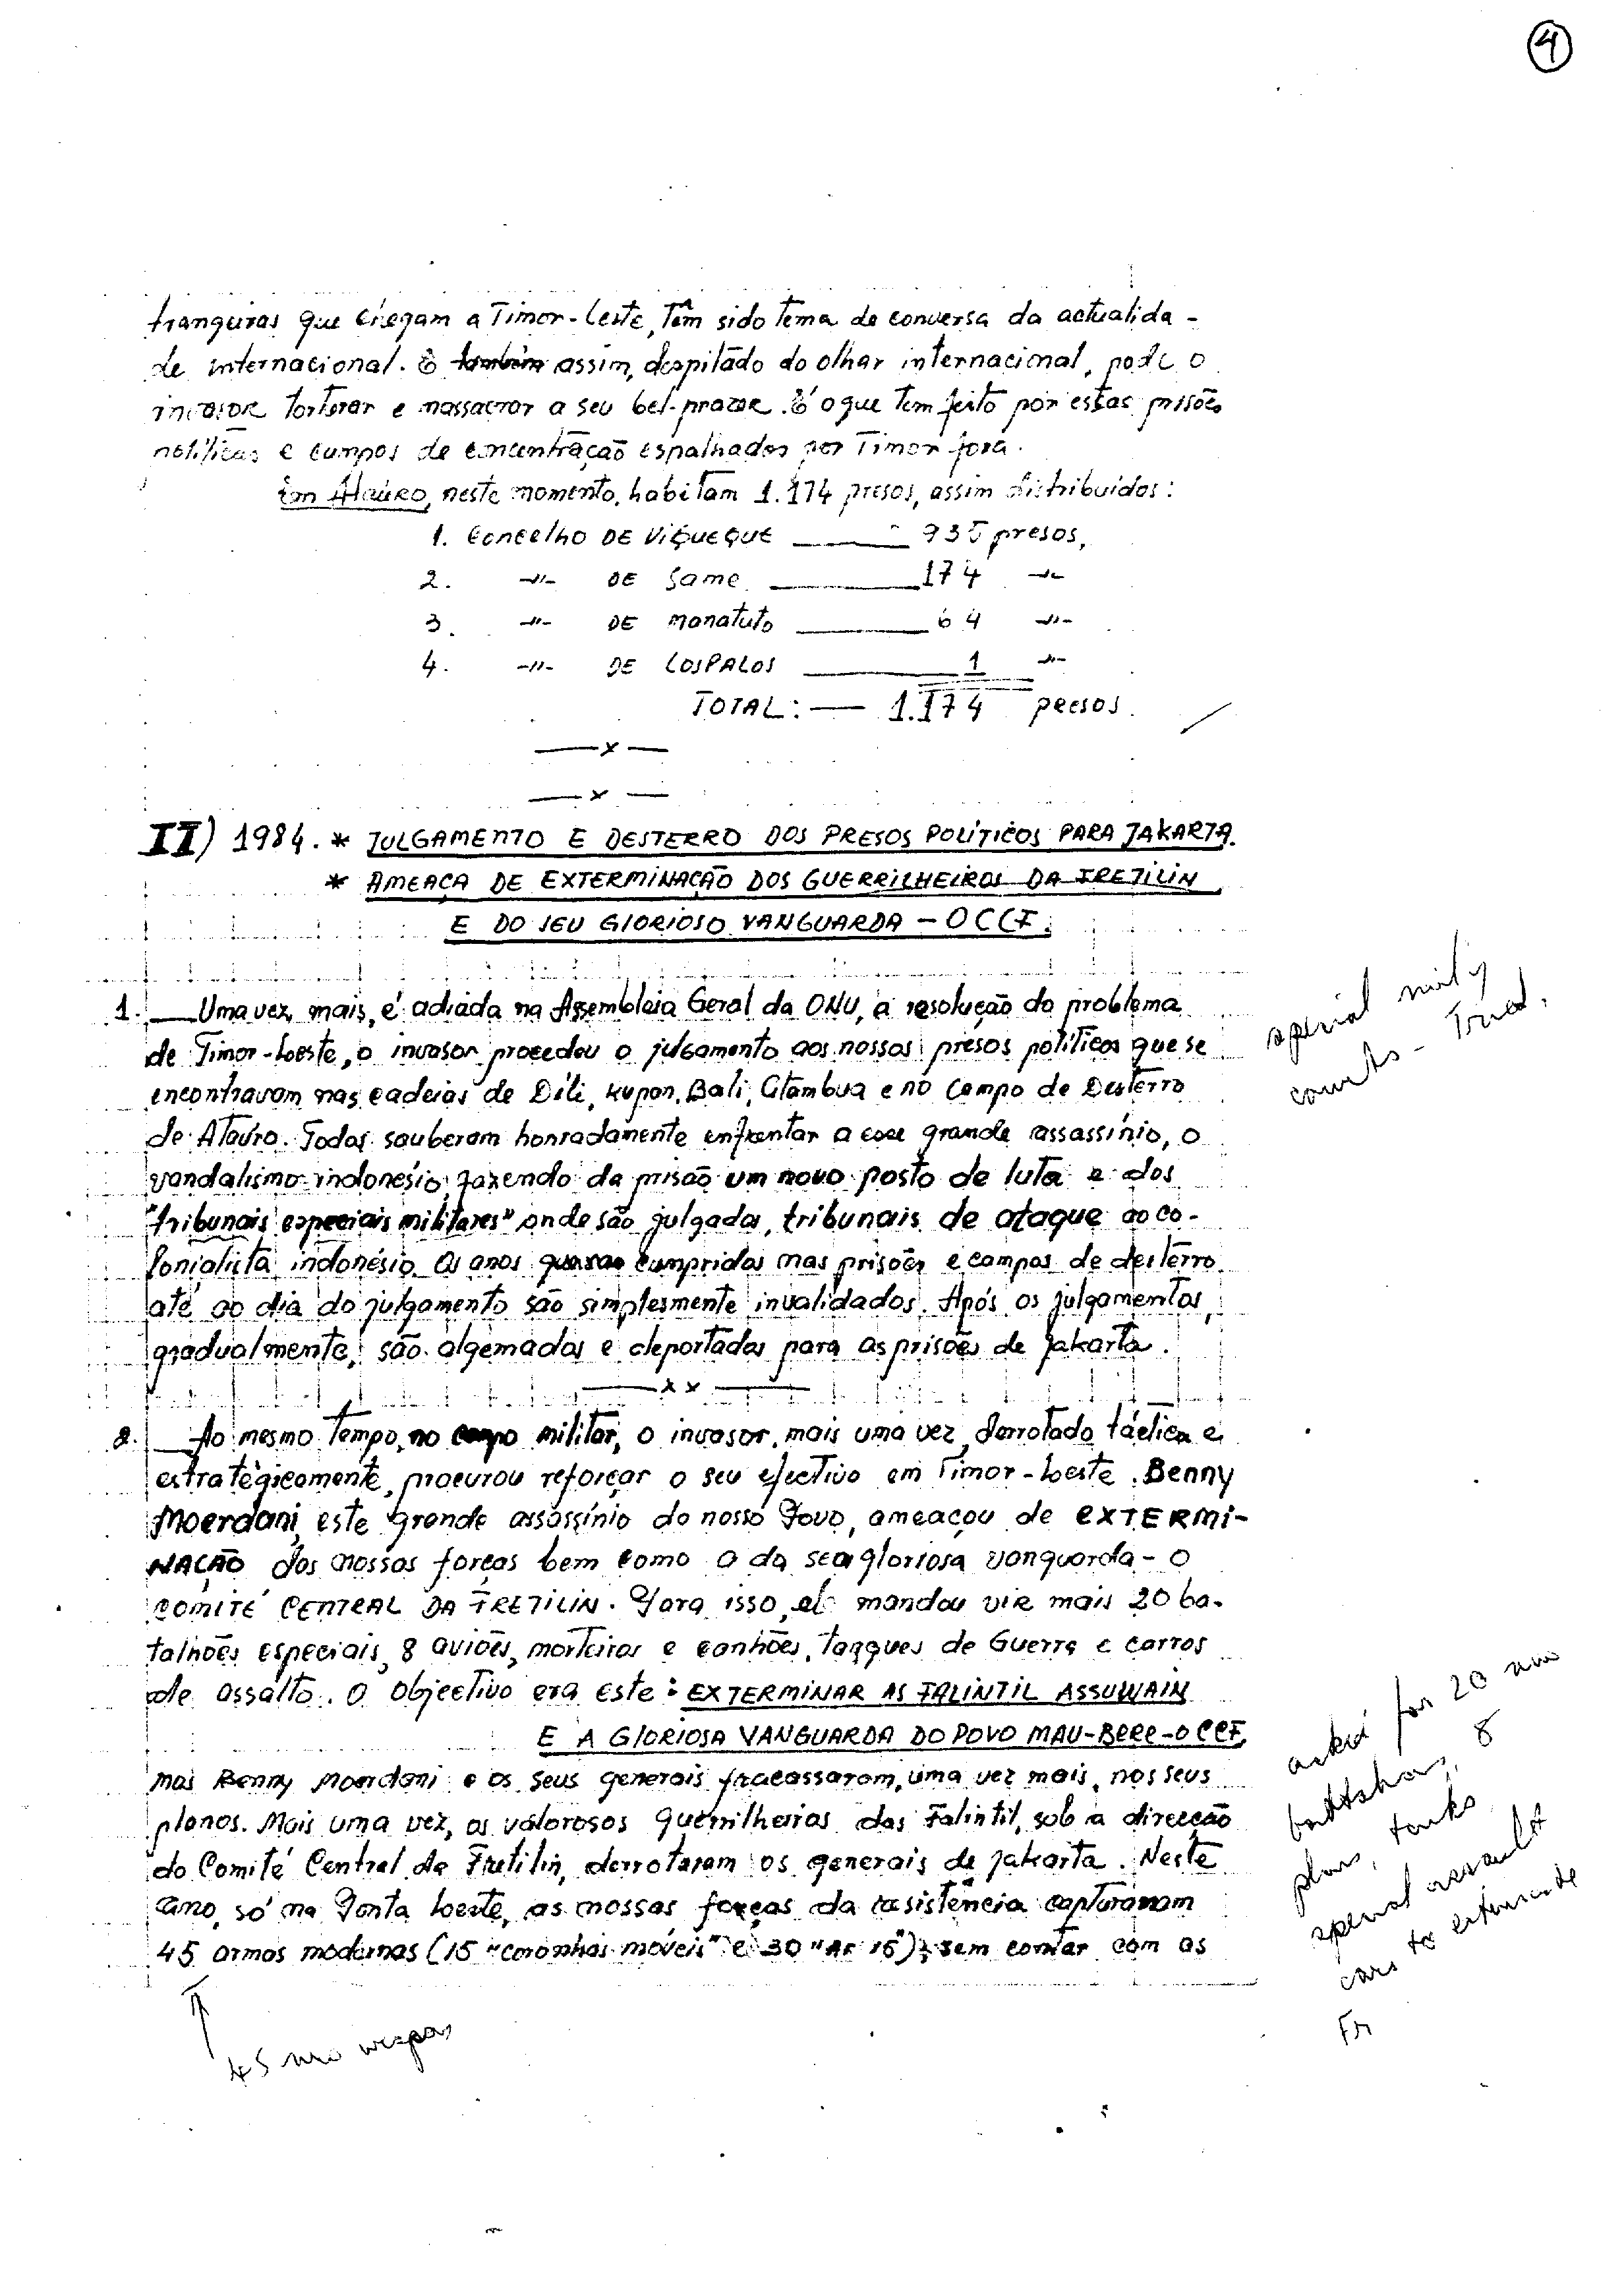 4
trangeiras que chegam a Timor-Leste, têm sido tema de conversa da actualida-
de internacional. E também assim, despitado do olhar internacional, pode o
invasor torturar e massacrar a seu bel-prazer. É o que tem feito por estas prisões
políticas e campos de concentração espalhados por Timor fora.
Em Ataúro, neste momento, habitam 1.174 presos, assim distribuídos:
1. Concelho DE Viqueque 935 presos,
2. -"- DE Same 174 -"-
3. -"- DE Manatuto 64 -"-
4. -"- DE LOSPALOS 1 -"-
TOTAL: — 1.174 presos.
—x—
—x—
II) 1984. * JULGAMENTO E DESTERRO DOS PRESOS POLÍTICOS PARA JAKARTA.
* AMEAÇA DE EXTERMINAÇÃO DOS GUERRILHEIROS DA FRETILIN
E DO SEU GLORIOSO VANGUARDA - O CCF.
1. — Uma vez mais, é adiada na Assembleia Geral da ONU, a resolução do problema
de Timor-Loeste, o invasor procedeu o julgamento aos nossos presos políticos que se
encontravam nas cadeias de Díli, Kupon, Bali, Atambua e no Campo de Desterro
de Ataúro. Todos sauberam honradamente enfrentar a esse grande assassínio, o
vandalismo indonésio, fazendo da prisão um novo posto de luta e dos
"tribunais especiais militares" onde são julgados, tribunais de ataque ao co-
lonialista indonésio. Os anos cumpridos nas prisões e campos de desterro
até ao dia do julgamento são simplesmente invalidados. Após os julgamentos,
gradualmente, são algemados e deportados para as prisões de Jakarta.
— x x —
2. — Ao mesmo tempo, no campo militar, o invasor, mais uma vez, derrotado táctica e
estratègicamente, procurou reforçar o seu efectivo em Timor-Loeste. Benny
Moerdani, este grande assassínio do nosso Povo, ameaçou de EXTERMI-
NAÇÃO das nossas forças bem como a da sua gloriosa vanguarda - O
COMITÉ CENTRAL DA FRETILIN. Para isso, ele mandou vir mais 20 ba-
talhões especiais, 8 aviões, morteiros e canhões, tanques de Guerra e carros
de assalto. O objectivo era este: EXTERMINAR AS FALINTIL ASSUWAIN
E A GLORIOSA VANGUARDA DO POVO MAU-BERE - O CCF,
mas Benny Moerdani e os seus generais fracassaram, uma vez mais, nos seus
planos. Mais uma vez, os valorosos guerrilheiros das Falintil, sob a direcção
do Comité Central da Fretilin, derrotaram os generais de Jakarta. Neste
ano, só na Ponta Loeste, as nossas forças da resistência capturaram
45 armas modernas (15 "coronhas móveis" e 30 "AR 16"), sem contar com as
special mil'y
courts - Tried.
asked for 20 new
battalions, 8
planes, tanks
special assault
cars to exterminate
Fr
45 new weapons